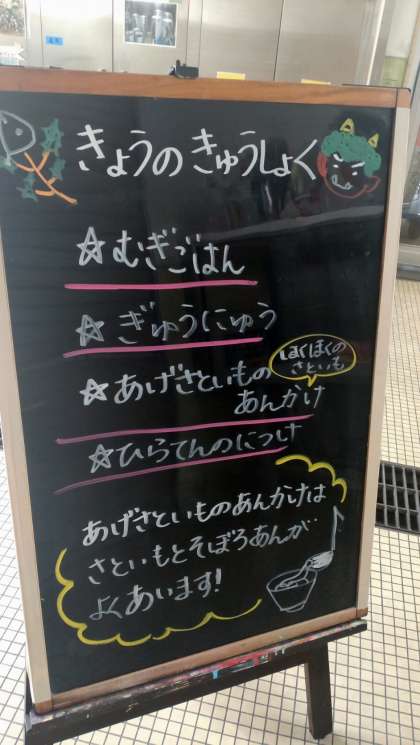 きょうの きゅうしょく
☆むぎごはん
☆ぎゅうにゅう
☆あげさといもの
あんかけ
ほくほくの
さといも
☆ひらてんのにつけ
あげさといものあんかけは
さといもとそぼろあんが
よくあいます!